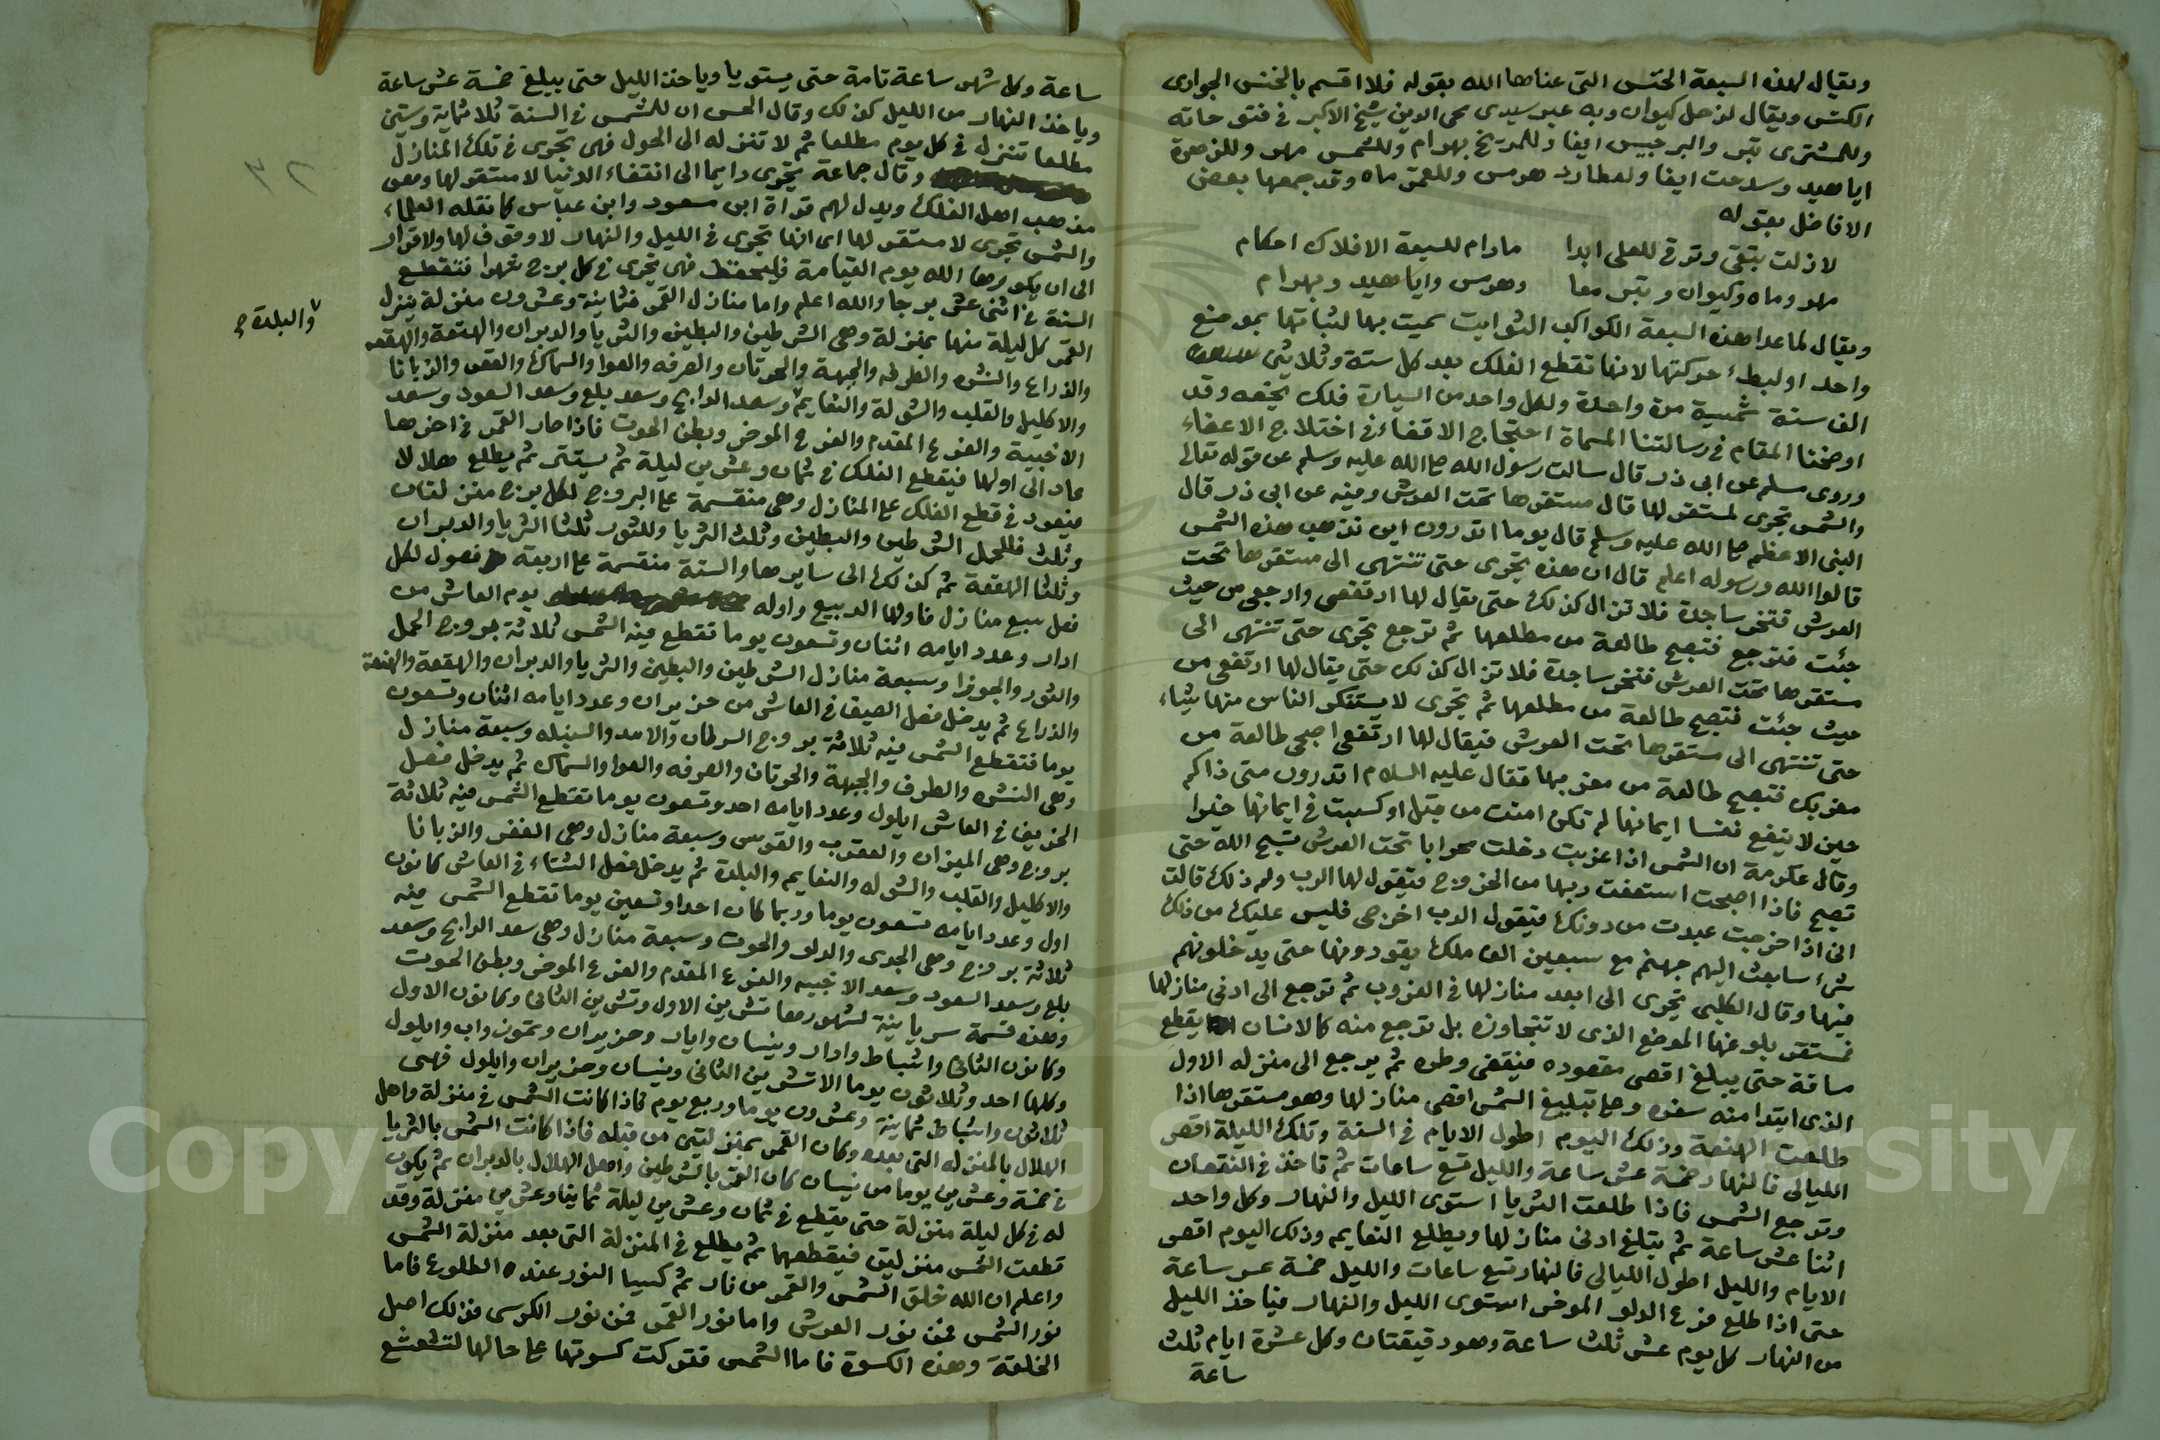 ويقال لهذه السبعة الخنس التى عناها الله بقوله فلا اقسم بالخنس الجوارى
الكنس ويقال لزحل كيوان وبه عبر سيدى محى الدين شيخ الاكبر فى فتوحاته
وللمشترى تير والبرجيس ايضا وللمريخ بهرام وللشمس مهر وللزهرة
اياهيد وبيدخت ايضا ولعطارد هرمس وللقمر ماه وقد جمعها بعض
الافاضل بقوله
لازلت تبقى وترقى للعلى ابدا مادام للسبعة الافلاك احكام
مهر وماه وكيوان وتير معا وهرمس واياهيد وبهرام
ويقال لما عدا هذه السبعة الكواكب الثوابت سميت بها لثباتها بموضع
واحد او لبطء حركتها لانها تقطع الفلك بعد كل ستة وثلاثين
الف سنة شمسية مرة واحدة ولكل واحد من السيارة فلك يخصه وقد
اوضحنا المقام فى رسالتنا المسماة احتجاج الاقضاء فى اختلاج الاعضاء
وروى مسلم عن ابى ذر قال سالت رسول الله صلى الله عليه وسلم عن قوله تعالى
والشمس تجرى لمستقر لها قال مستقرها تحت العرش وفيه عن ابى ذر قال
النبى الاعظم صلى الله عليه وسلم قال يوما اتدرون اين تذهب هذه الشمس
قالوا الله ورسوله اعلم قال ان هذه تجرى حتى تنتهى الى مستقرها تحت
العرش فتخر ساجدة فلا تزال كذلك حتى يقال لها ارتفعى وارجعى من حيث
جئت فترجع فتصبح طالعة من مطلعها ثم ترجع تجرى حتى تنتهى الى
مستقرها تحت العرش فتخر ساجدة فلا تزال كذلك حتى يقال لها ارتفعى من
حيث جئت فتصبح طالعة من مطلعها ثم تجرى لا يستنكر الناس منها شياء
حتى تنتهى الى مستقرها تحت العرش فيقال لها ارتفعى اصبحى طالعة من
مغربك فتصبح طالعة من مغربها فقال عليه السلام اتدرون متى ذاكم
حين لا ينفع نفسا ايمانها لم تكن امنت من قبل او كسبت فى ايمانها خيرا
وقال عكرمة ان الشمس اذا غربت دخلت محرابا تحت العرش تسبح الله حتى
تصبح فاذا اصبحت استعفت ربها من الخروج فيقول لها الرب ولم ذلك قالت
انى اذا خرجت عبدت من دونك فيقول الرب اخرجى فليس عليك من ذلك
شىء سابعث اليهم جهنم مع سبعين الف ملك يقودونها حتى يدخلونهم
فيها وقال الكلبى تجرى الى ابعد منازلها فى الغروب ثم ترجع الى ادنى منازلها
فستقر بلوغها الموضع الذى لا تتجاوزه بل ترجع منه كالانسان يقطع
مسافة حتى يبلغ اقصى مقصوده فيقضى وطره ثم يرجع الى منزله الاول
الذى ابتدا منه سفره وحل تبليغ الشمس اقصى منازلها وهو مستقرها اذا
طلعت الهنعة وذلك اليوم اطول الايام فى السنة وتلك الليلة اقصر
الليالى فالنهار خمسة عشر ساعة والليل تسع ساعات ثم تاخذ فى النقصان
وترجع الشمس فاذا طلعت الثريا استوى الليل والنهار وكل واحد
اثنا عشر ساعة ثم تبلغ ادنى منازلها ويطلع النعايم وذلك اليوم اقصر
الايام والليل اطول الليالى فالنهار تسع ساعات والليل خمسة عشر ساعة
حتى اذا طلع فرع الدلو الموخر استوى الليل والنهار فياخذ الليل
من النهار كل يوم عشر ثلث ساعة وهو دقيقتان وكل عشرة ايام ثلث
ساعة
ساعة وكل شهر ساعة تامة حتى يستويا وياخذ الليل حتى يبلغ خمسة عشر ساعة
وياخذ النهار من الليل كذلك وقال الحسن ان للشمس فى السنة ثلاثماية وستين
مطلعا تنزل فى كل يوم مطلعا ثم لا تنزله الى الحول فهى تجرى فى تلك المنازل
وقال جماعة تجرى دايما الى انقضاء الدنيا لا مستقر لها وهو
مذهب اهل الفلك ويدل لهم قراة ابن مسعود وابن عباس كما نقله العلماء
والشمس تجرى لا مستقر لها اى انها تجرى فى الليل والنهار لا وقوف لها ولا قرار
الى ان يكورها الله يوم القيامة فليحفظ فهى تجرى فى كل برج شهرا فتقطع
السنة فى اثنى عشر برجا والله اعلم واما منازل القمر فثمانية وعشرون منزلة ينزل
القمر كل ليلة منها بمنزلة وهى الشرطين والبطين والثريا والدبران والهقعة والهنعه
والذراع والنثره والطرفه والجبهة والخرتان والصرفه والعوا والسماك والغفر والزبانا
والاكليل والقلب والشولة والنعايم وسعد الذابح وسعد بلع وسعد السعود وسعد
والبلدة صح
الاخبية والفرع المقدم والفرع الموخر وبطن الحوت فاذا صار القمر فى اخرها
عاد الى اولها فيقطع الفلك فى ثمان وعشرين ليلة ثم يستتر ثم يطلع هلالا
فيعود فى قطع الفلك على المنازل وهى منقسمة على البروج لكل برج منزلتان
وثلث فللحمل الشرطين والبطين وثلث الثريا وللثور ثلثا الثريا والدبران
وثلثا الهقعة ثم كذلك الى سايرها والسنة منقسمة على اربعة فصول لكل
فصل سبع منازل فاولها الربيع واوله يوم العاشر من
ادار وعدد ايامه اثنان وتسعون يوما تقطع فيه الشمس ثلاثة بروج الحمل
والثور والجوزا وسبعة منازل الشرطين والبطين والثريا والدبران والهقعة والهنعة
والذراع ثم يدخل فصل الصيف فى العاشر من حزيران وعدد ايامه اثنان وتسعون
يوما فتقطع الشمس فيه ثلاثة بروج السرطان والاسد والسنبله وسبعة منازل
وهى النثره والطرف والجبهة والخرتان والصرفه والعوا والسماك ثم يدخل فصل
الخريف فى العاشر ايلول وعدد ايامه احد وتسعون يوما تقطع الشمس فيه ثلاثة
بروج وهى الميزان والعقرب والقوس وسبعة منازل وهى الغفر والزبانا
والاكليل والقلب والشوله والنعايم والبلدة ثم يدخل فصل الشتاء فى العاشر كانون
اول وعدد ايامه تسعون يوما وربما كان احدا وتسعين يوما تقطع الشمس فيه
ثلاثة بروج وهى الجدى والدلو والحوت وسبعة منازل وهى سعد الذابح وسعد
بلع وسعد السعود وسعد الاخبيه والفرع المقدم والفرع الموخر وبطن الحوت
وهذه قسمة سريانية لشهورها تشرين الاول وتشرين الثانى وكانون الاول
وكانون الثانى واشباط وادار ونيسان وايار وحزيران وتموز واب وايلول
وكلها احد وثلاثون يوما الا تشرين الثانى ونيسان وحزيران وايلول فهى
ثلاثون واشباط ثمانية وعشرون يوما وربع يوم فاذا كانت الشمس فى منزلة واهل
الهلال بالمنزله التى بعده وكان القمر بمنزلتين من قبله فاذا كانت الشمس بالثريا
فى خمسة وعشرين يوما من نيسان كان القمر بالشرطين واهل الهلال بالدبران ثم يكون
له فى كل ليلة منزلة حتى يقطع فى ثمان وعشرين ليلة ثمانيا وعشرين منزلة وقد
قطعت الشمس منزلتين فيقطعهما ثم يطلع فى المنزلة التى بعد منزلة الشمس
واعلم ان الله خلق الشمس والقمر من نار ثم كسيا النور عنده الطلوع فاما
نور الشمس فمن نور العرش واما نور القمر فمن نور الكرسى فذلك اصل
الخلقة وهذه الكسوة فاما الشمس فتركت كسوتها على حالها لتشعشع
Copyright © King Saud University